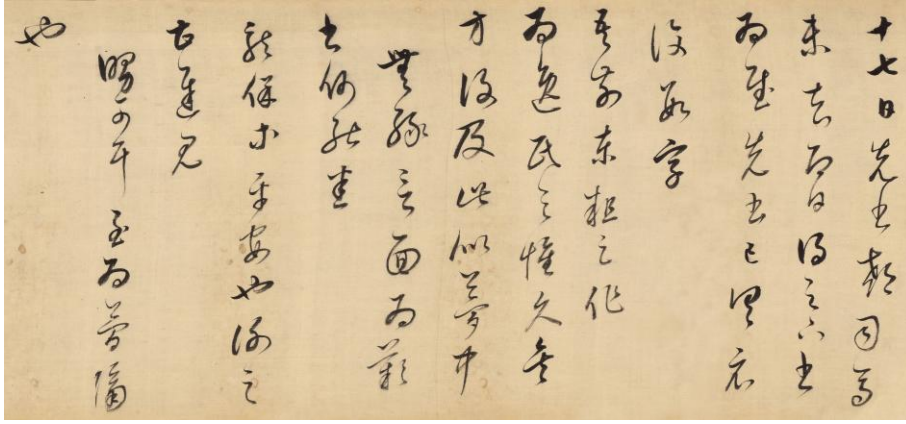 十七日先書郗司馬
未去即日得足下書
為慰先書已具示
復數字
吾前東粗足作
為逸民之懷久矣
方復及此似夢中
無緣言面為歎
書何能悉
龍保等平安也謝之
甚遲見
舅可耳至為簡隔
也